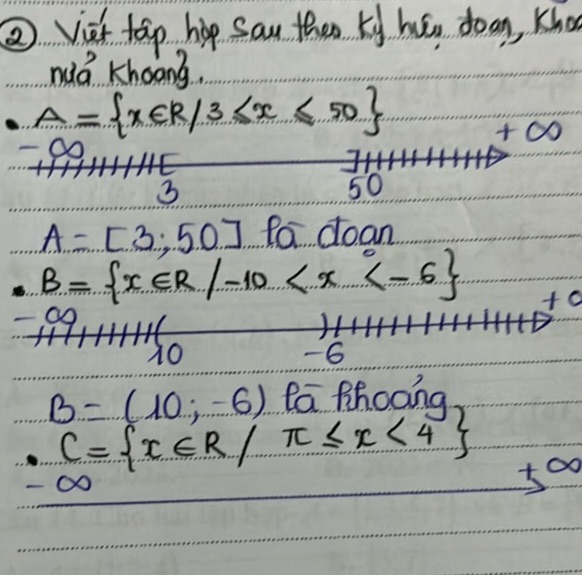 ② Viết tập hợp sau theo ký hiệu đoạn, Kho
nửa Khoảng.
• A = {x ∈ R / 3 ≤ x ≤ 50}
-∞ [ ] +∞
3 50
A = [3; 50] là đoạn
• B = {x ∈ R / -10 < x < -6}
-∞ ( ) +
10 -6
B = (10; -6) là khoảng
• C = {x ∈ R / π ≤ x < 4}
-∞ +∞